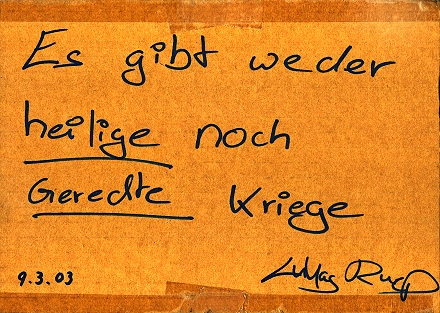 Es gibt weder
heilige noch
Gerechte Kriege
9.3.03